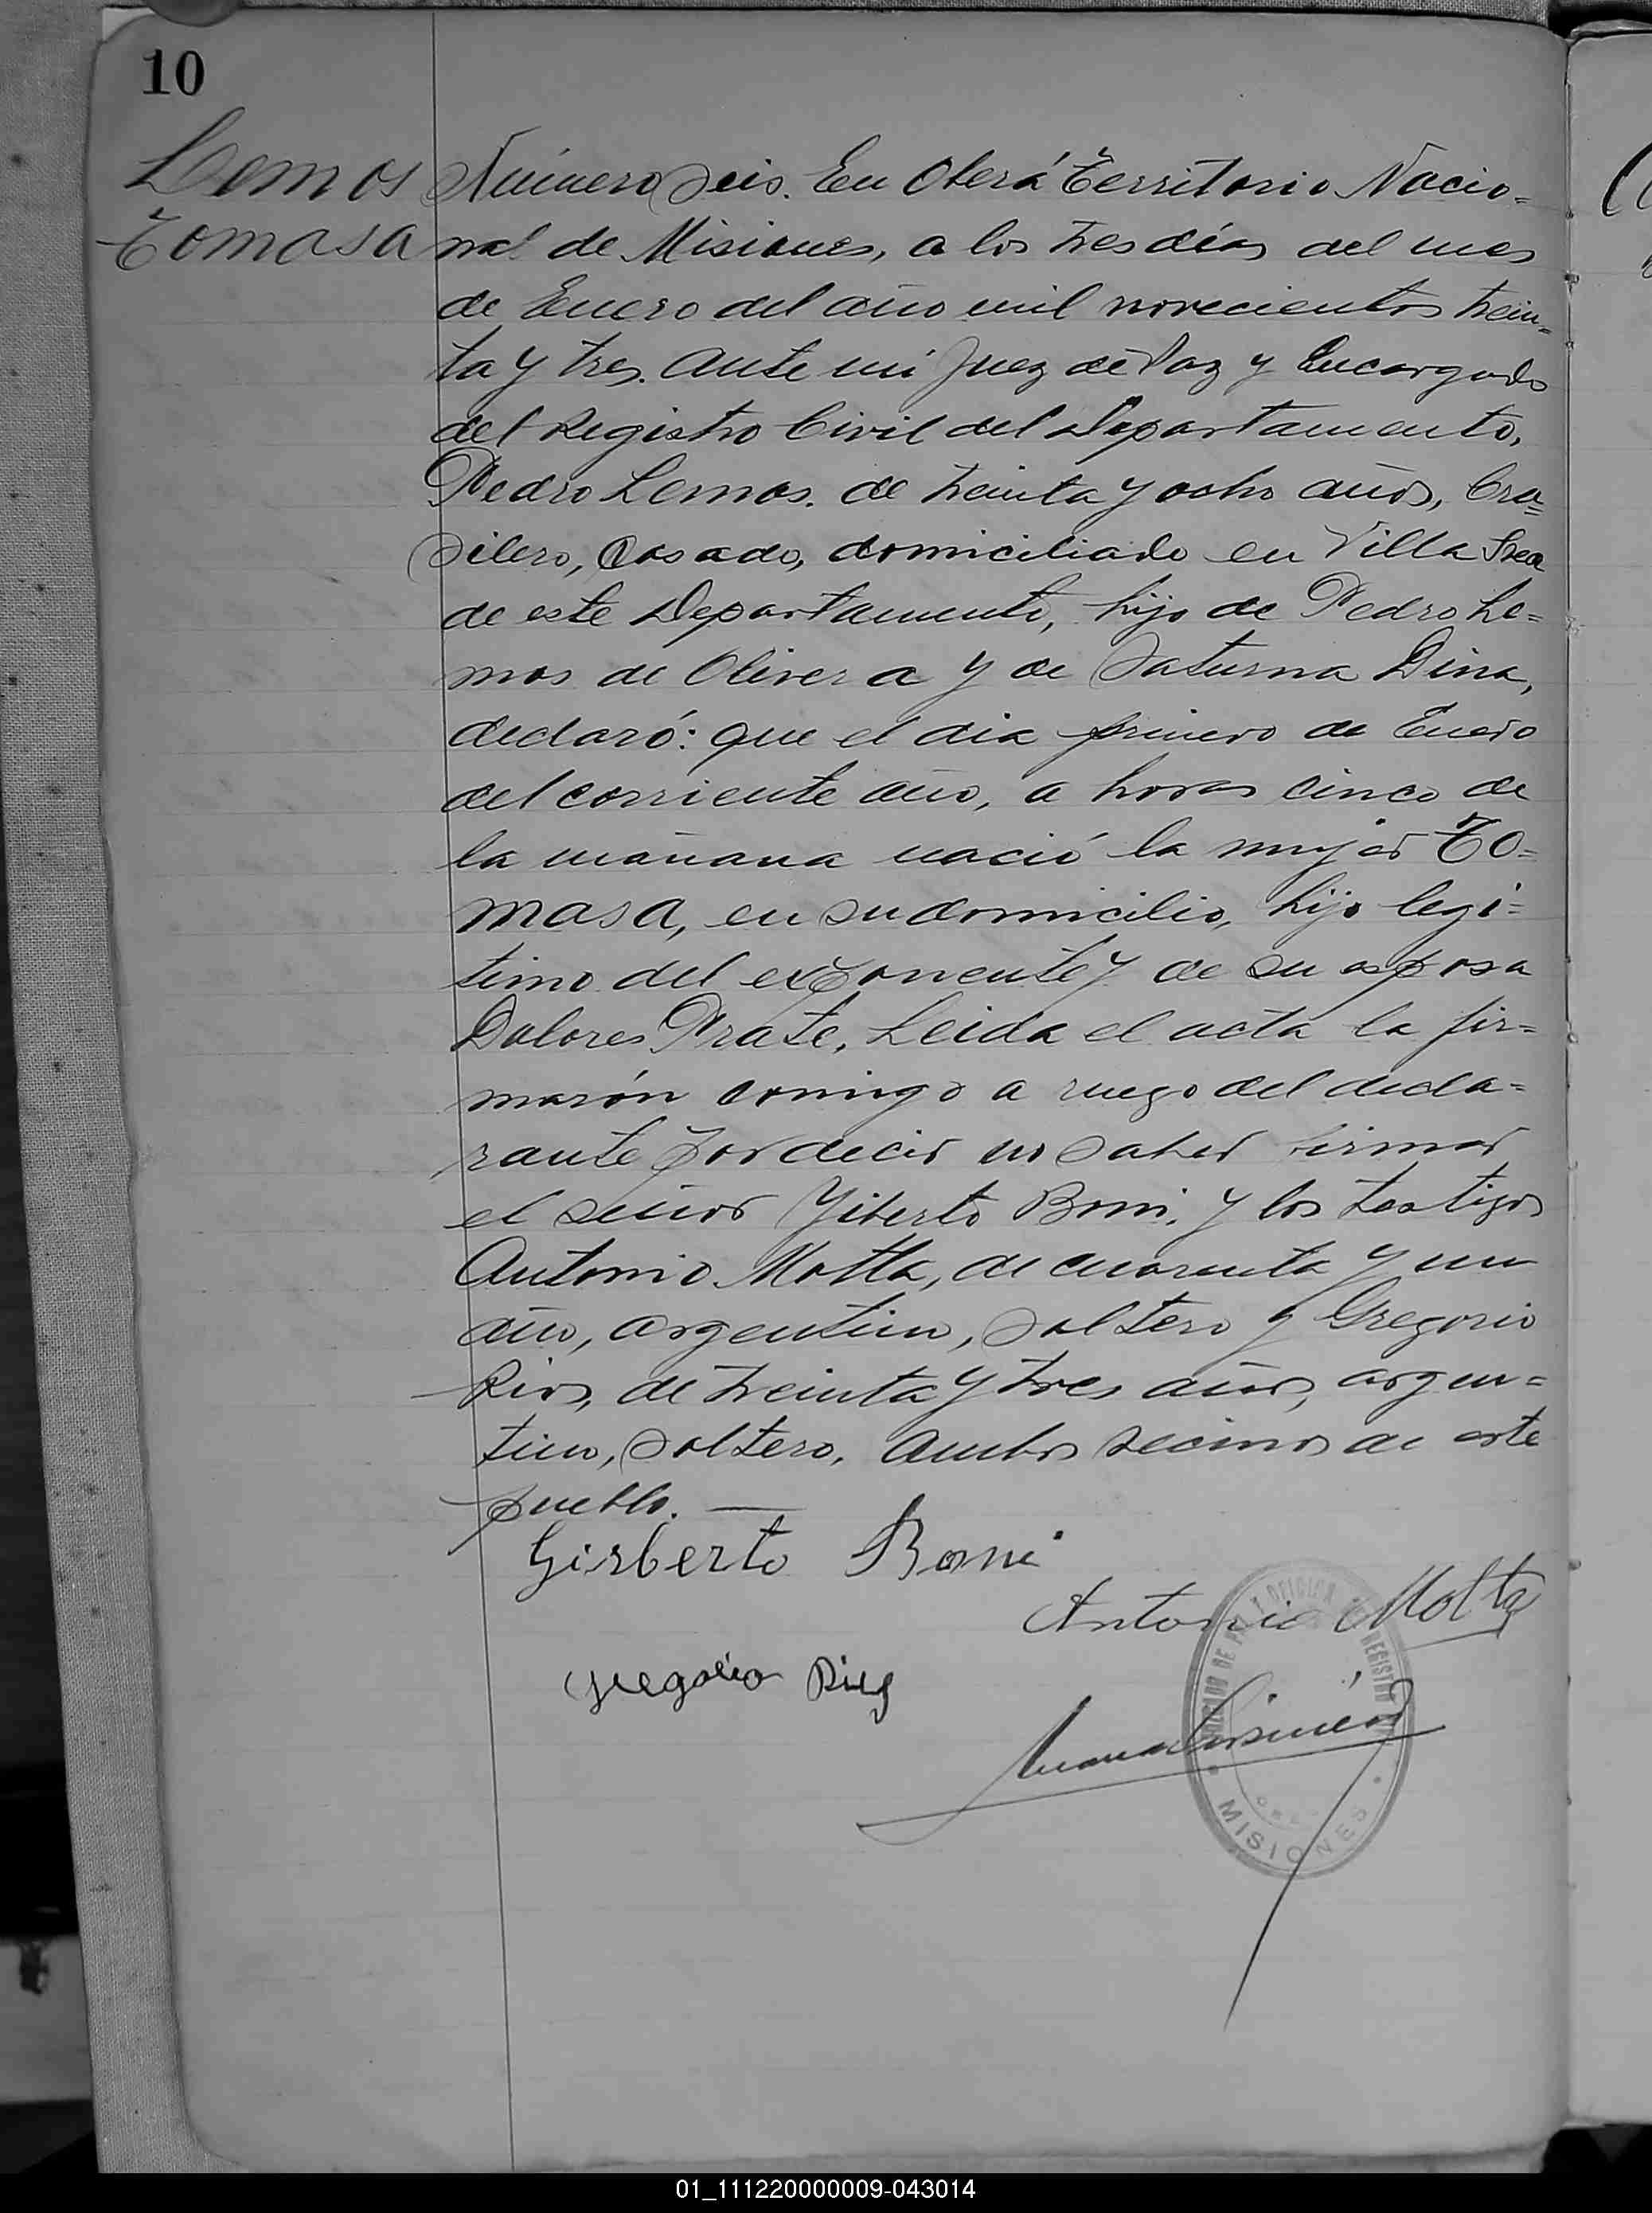 10
Lemos
Tomasa
Número Seis. En Oberá Territorio Nacio=
nal de Misiones, a los tres días del mes
de Enero del año mil novecientos trein=
ta y tres. Ante mi Juez de Paz y Encargado
del Registro Civil del Departamento,
Pedro Lemos. de treinta y ocho años, Bra=
silero, Casado, domiciliado en Villa
de este Departamento, hijo de Pedro Le=
mos de Olivera y de Saturna Dina,
declaró: que el dia primero de Enero
del corriente año, a horas cinco de
la mañana nació la mujer To=
masa, en su domicilio, hijo legi=
timo del exponente y de su esposa
Dolores Prate. Leida el acta la fir=
marón conmigo a ruego del decla=
rante por decir no saber firmar
el señor Yiberto Boni, y los testigos
Antonio Motta, de cuarenta y un
año, argentino, Soltero y Gregorio
Rios, de treinta y tres años, argen=
tino, Soltero. Ambos vecinos de este
pueblo. —
Girberto Boni
Antonio Motta
Gregorio Rios
MISIONES
01_111220000009-043014